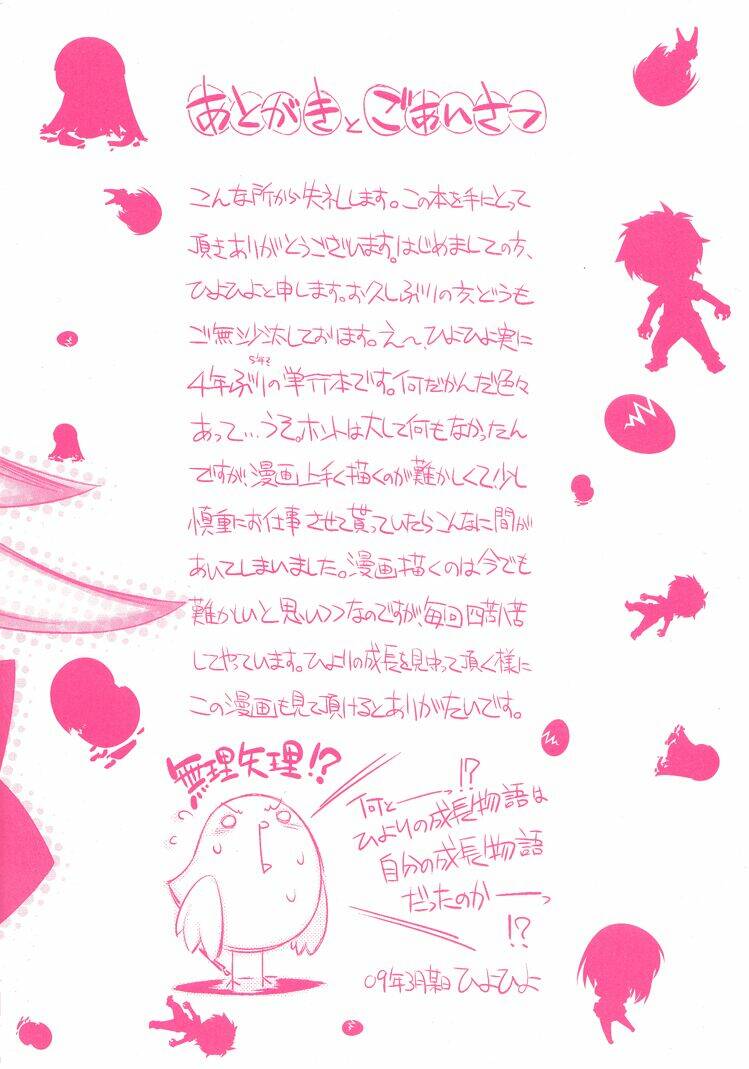 あとがきとごあいさつ
こんな所から失礼します。この本を手にとって
頂きありがとうございます。はじめましての方、
ひよひよと申します。お久しぶりの方、どうも
ご無沙汰しております。え〜、ひよひよ実に
4年ぶりの単行本です。何だかんだ色々
あって…うそ。ホントは大して何もなかったん
ですが、漫画上手く描くのが難かしくて、少し
慎重にお仕事させて貰っていたらこんなに間が
あいてしまいました。漫画描くのは今でも
難かしいと思いつつなのですが、毎回四苦八苦
してやっています。ひよりの成長を見守って頂く様に
この漫画も見て頂けるとありがたいです。
無理矢理!?
何とーーっ!?
ひよりの成長物語は
自分の成長物語
だったのかーーっ
!?
09年3月某日 ひよひよ